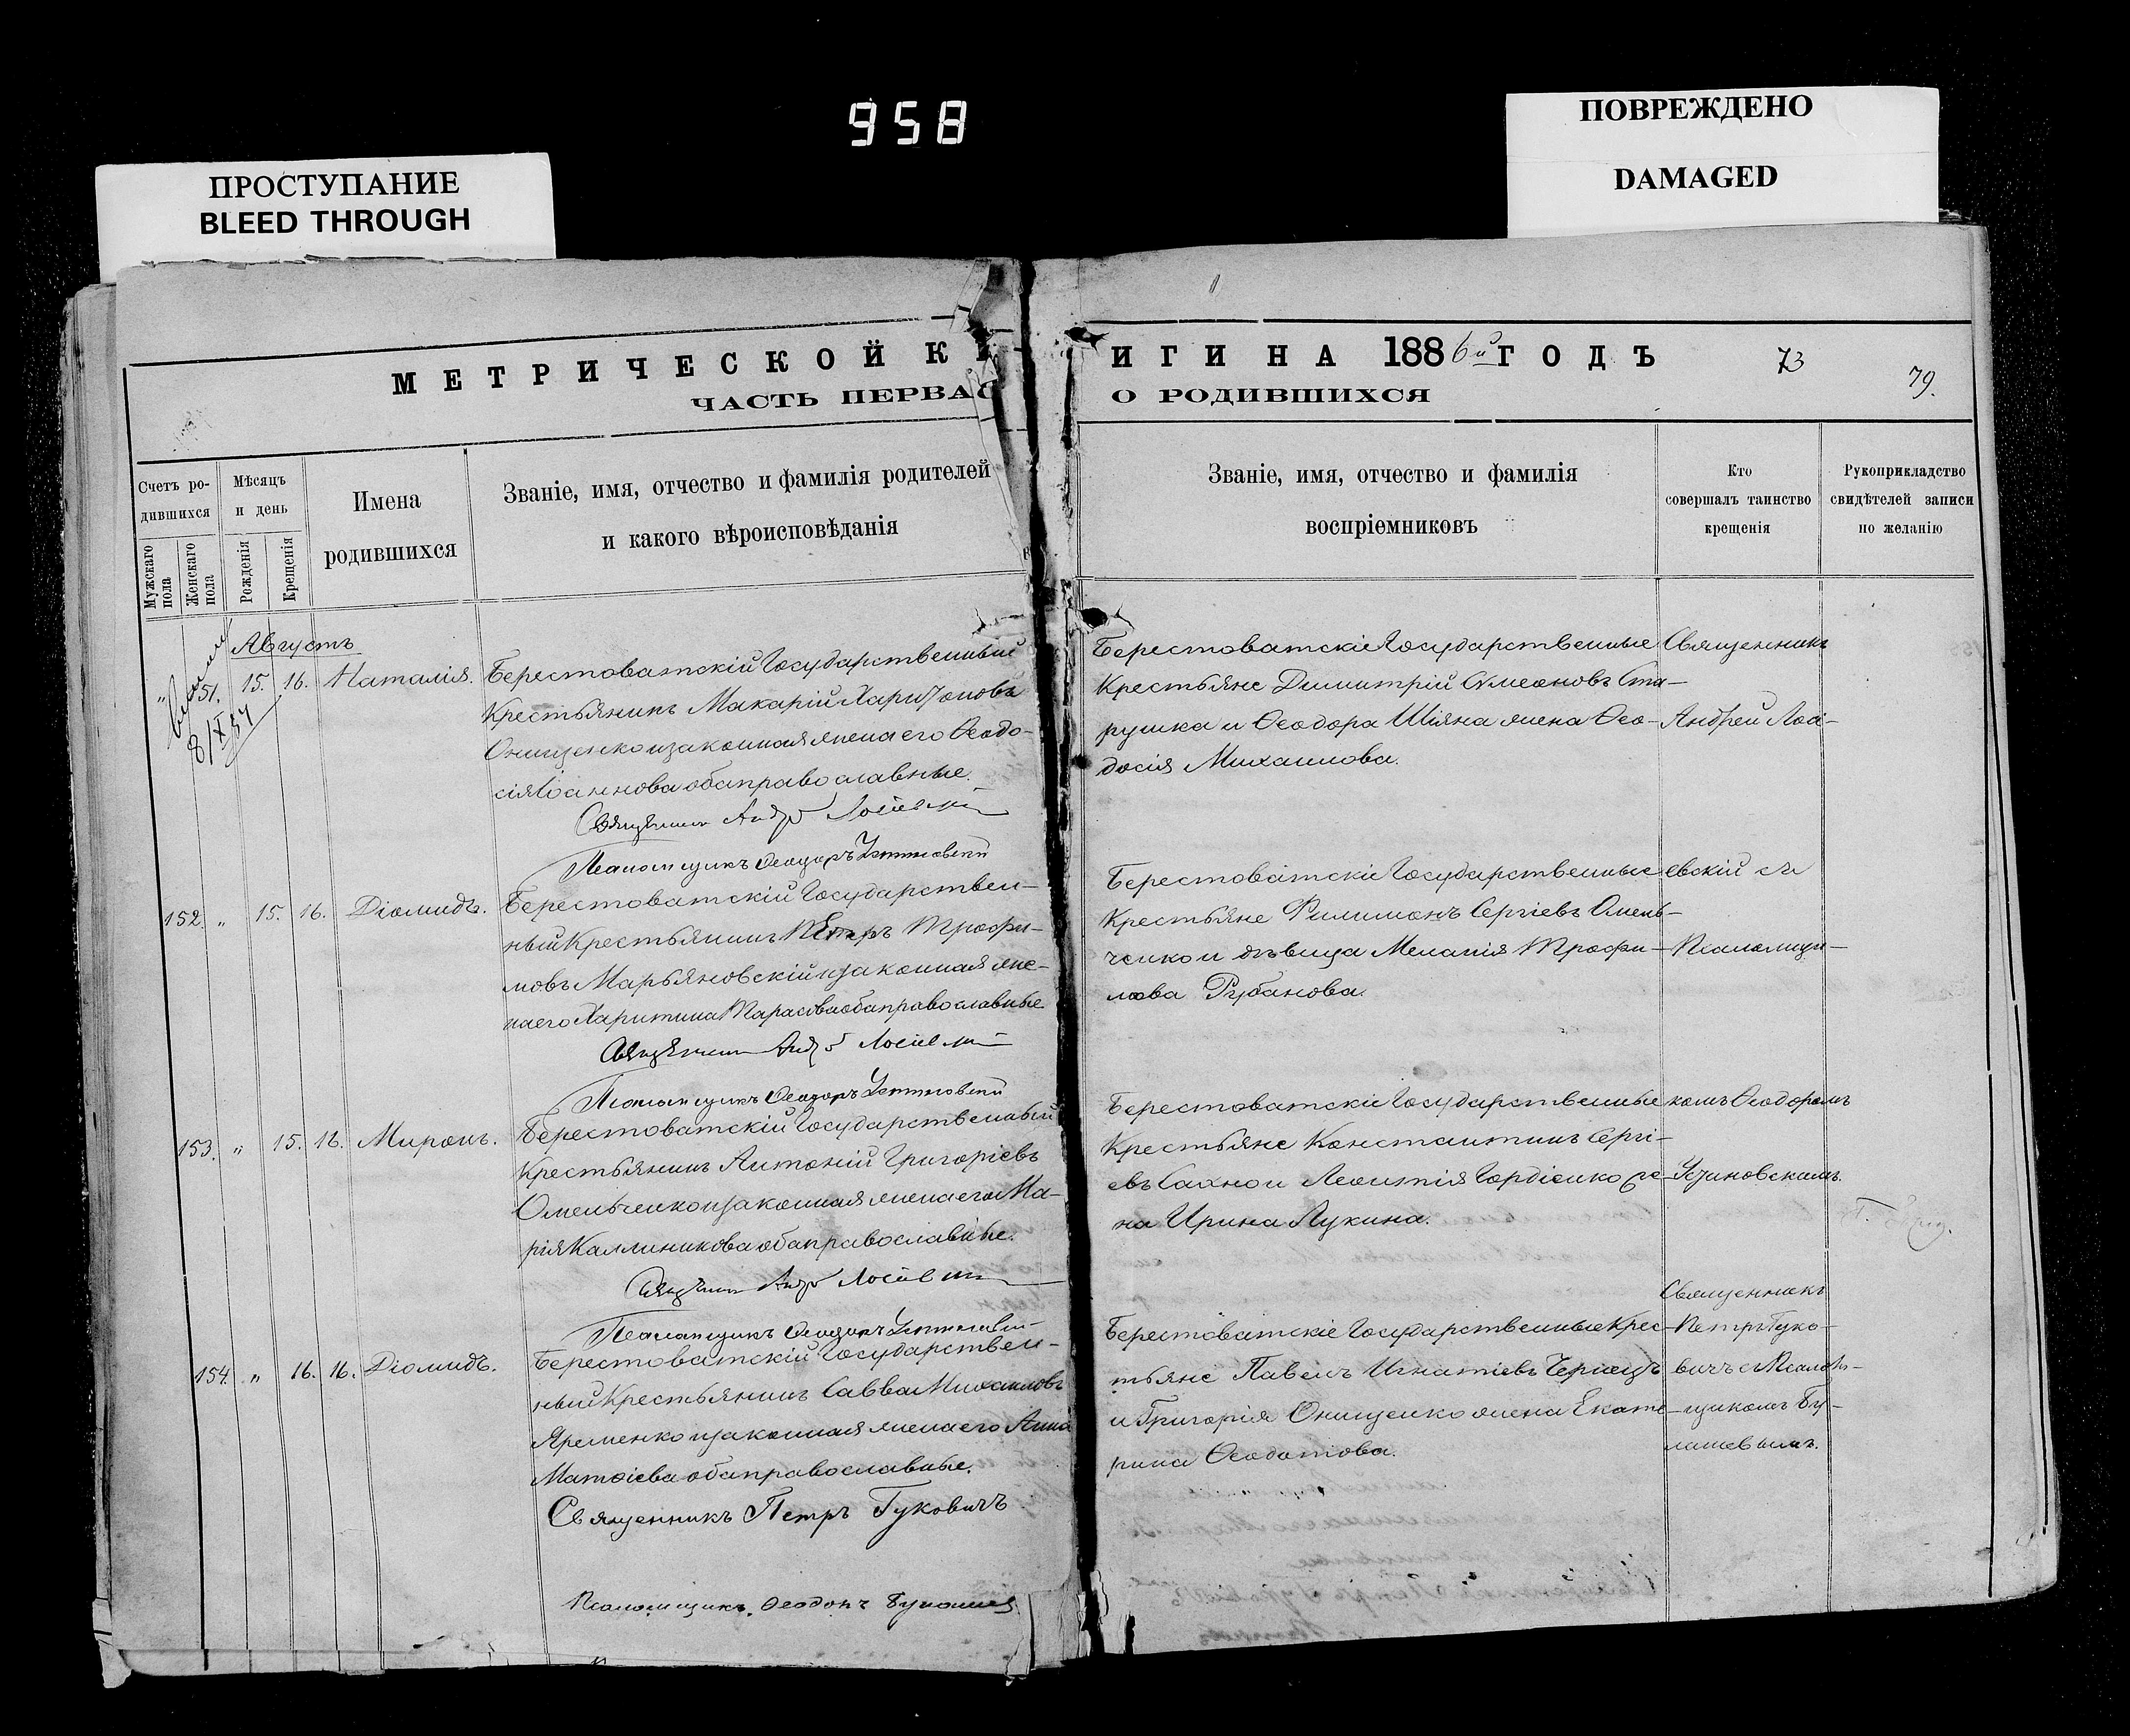 958
ПРОСТУПАНИЕ
BLEED THROUGH
ПОВРЕЖДЕНО
DAMAGED
МЕТРИЧЕСКОЙ К
ИГИ НА 1886й ГОДЪ
73
79.
ЧАСТЬ ПЕРВАЯ
О РОДИВШИХСЯ
Счетъ ро-
дившихся
Мужскаго пола
Женскаго пола
Мѣсяцъ
и день
Рожденія
Крещенія
Имена
родившихся
Званіе, имя, отчество и фамилія родителей
и какого вѣроисповѣданія
Званіе, имя, отчество и фамилія
воспріемниковъ
Кто
совершалъ таинство
крещенія
Рукоприкладство
свидѣтелей записи
по желанію
Августъ
" 151. 15. 16. Наталія.
8/X 37
Берестоватскій Государственный
Крестьянинъ Макарій Харитоновъ
Онищенко и законная жена его Ѳеодо-
сія Іоаннова оба православные.
Священникъ Андр Лосіевскій
Псаломщикъ Ѳеодоръ Устиновскій
Берестоватскіе Государственные
Крестьяне Димитрій Симеоновъ Ста-
рушка и Ѳеодора Шіяна жена Ѳео-
досія Михаилова.
Священникъ
Андрей Лосі-
152. " 15. 16. Діомидъ.
Берестоватскій Государствен-
ный Крестьянинъ Петръ Трофи-
мовъ Марьяновскій и законная же-
на его Харитина Тарасіева оба православные
Священникъ Андр Лосіевскій
Псаломщикъ Ѳеодоръ Устиновскій
Берестоватскіе Государственные
Крестьяне Филимонъ Сергіевъ Омель-
ченко и дѣвица Меланія Трофи-
мова Рубанова.
евскій съ
Псаломщи-
153. " 15. 16. Миронъ.
Берестоватскій Государственный
Крестьянинъ Антоній Григоріевъ
Омельченко и законная жена его Ма-
рія Каллиникова оба православные.
Священникъ Андр Лосіевскій
Псаломщикъ Ѳеодоръ Устиновскій
Берестоватскіе Государственные
Крестьяне Константинъ Сергі-
евъ Сахно и Леонтія Гордіенко же-
на Ирина Лукина.
комъ Ѳеодоромъ
Устиновскимъ.
154. " 16. 16. Діомидъ.
Берестоватскій Государствен-
ный Крестьянинъ Савва Михаиловъ
Яременко и законная жена его Анна
Матѳіева оба православные.
Священникъ Петръ Гуковичъ
Псаломщикъ Ѳеодоръ
Берестоватскіе Государственные Крес-
тьяне Павелъ Игнатіевъ Чернецъ
и Григорія Онищенко жена Екате-
рина Ѳеодотова.
Священникъ
Петръ Гуко-
вичъ съ Псалом-
щикомъ Бу-